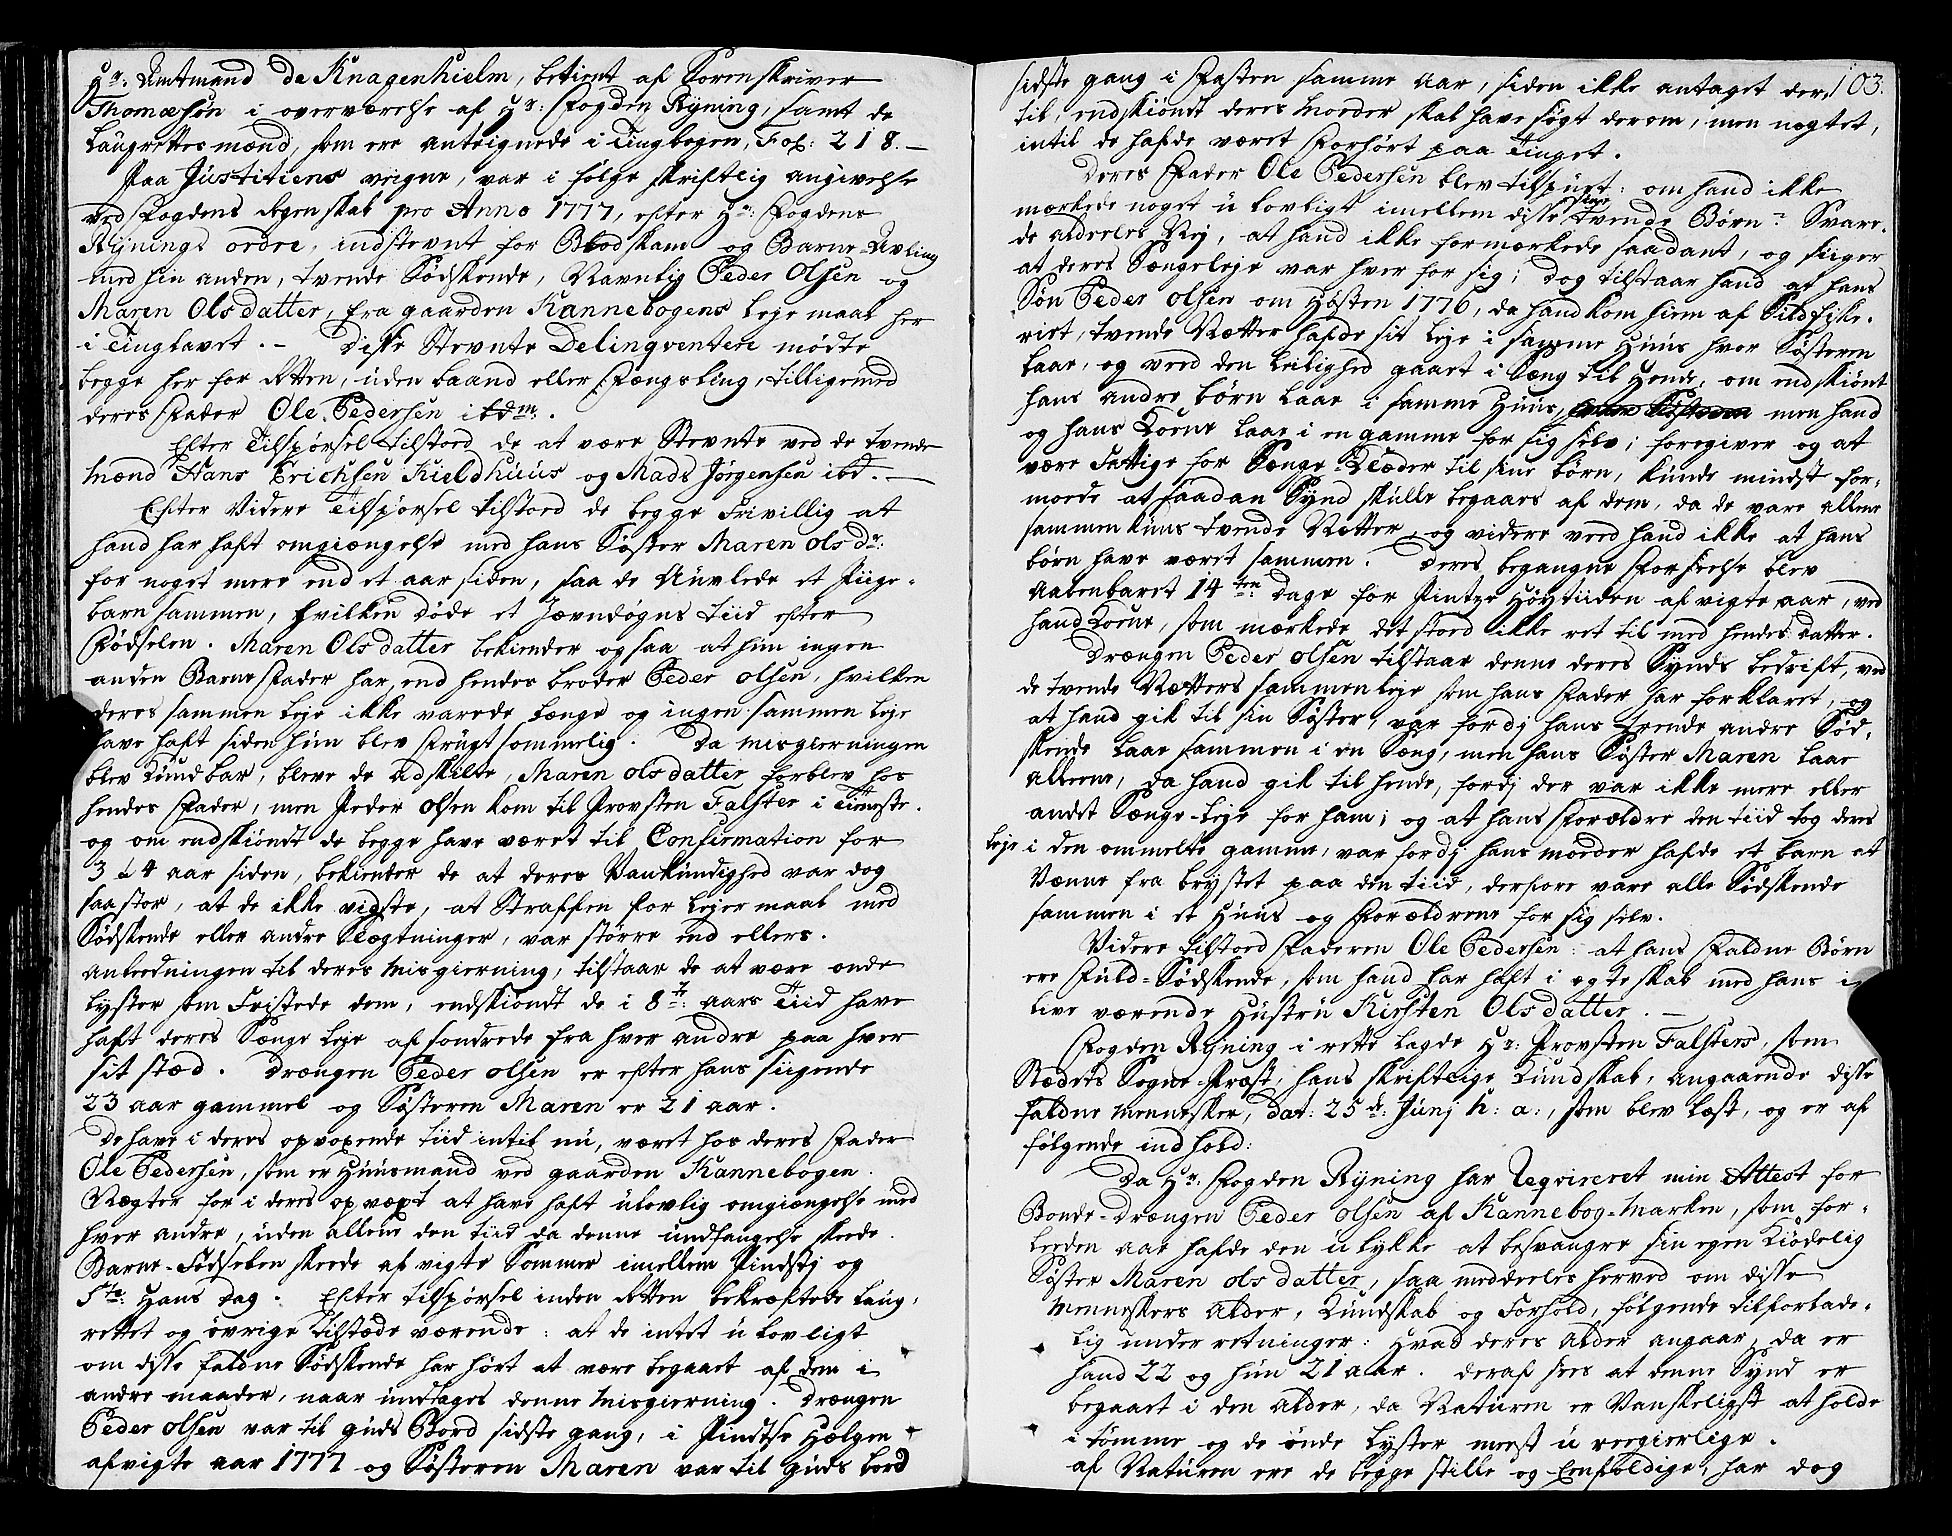 Hr: Amtmand de Knagenhielm, betient af Sorenskriver
Thomæsøn i overværelse af Hr: Fogden Rÿning, samt de
Laugrettesmænd, som ere anteignede i Tingbogen, Fol: 218. —
Paa Justitiens vegne, var i følge skriftlig angivelse
ved Fogdens Regenskab pro Anno 1777, efter Hr: Fogdens
Rÿnings ordre, indstevnt for Blodskam og Barne-Avling
med hin anden, tvende Sødskende, Navnlig Peder Olsen og
Maren Olsdatter, fra gaarden Kannebogens Leje maal her
i Tinglavet. — Disse Stevnte Delinqventere mødte
begge her for Rtten, uden baand eller Fængsling, tilligemed
deres Fader Ole Pedersen ibdm.
Efter Tilspørsel tilstoed de at være Stevnte ved de tvende
Mænd Hans Erichsen Kieldhuus og Mads Jørgensen ibd. —
Efter Videre Tilspørsel tilstoed de begge Frivillig at
hand har haft omgiængelse med hans Søster Maren olsdr:
for noget mere end et aar siden, saa de Auvlede et Piige-
barn sammen, hvilken døde et Jævndøgns tiid efter
Fødselen. Maren Olsdatter bekiender ogsaa at hun ingen
anden Barne Fader har, end hendes broder Peder olsen, hvilken
deres sammen Leje ikke varede længe og ingen sammen Leje
have haft siden hun blev Frugtsommelig. Da misgierningen
blev Kundbar, bleve de adskilte, Maren olsdatter forblev hos
hendes Fader, men Peder olsen kom til Provsten Falster i Tieneste.
og om endskiøndt de begge have været til Confirmation for
3 á 4 aar siden, bekiender de at deres Vankundighed var dog
saa stor, at de ikke vidste, at Straffen for Lejermaal med
Sødskende eller andre Slægtninger, var større end ellers.
Anleedningen til deres misgierning, tilstaar de at være onde
Lyster som Fristede dem, endskiøndt de i 8te: aars Tiid have
haft deres Sænge Leje afsondrede fra hver andre paa hver
sit stæd. Drængen Peder olsen er efter hans sigende
23 aar gammel og Søsteren Maren er 21 aar.
De have i deres opvoxende tiid intil nu, været hos deres Fader
Ole Pedersen, som er Huusmand ved gaarden Kannebogen.
Nægter for i deres opvæxt at have haft ulovlig omgiængelse med
hver andre, uden allene den tiid da denne undfangelse skeede.
Barne-Fødselen skeede afvigte Sommer imellem Pindstj og
Ste: Hans Dag. Efter tilspørsel inden Rtten bekræftede Laug-
rettet og øvrige tilstæde værende: at de intet ulovligt
om disse faldne Sødskende har hørt at være begaaet af dem i
andre maader, naar undtages denne misgierning. Drængen
Peder olsen var til Guds Bord sidste gang, i Pindtse Hælgen
afvigte aar 1777 og Søsteren Maren var til Guds bord
103.
sidste gang i Fasten samme aar, siden ikke antaget der-
til, endskiøndt deres Moeder skal have søgt derom, men nægtet,
intil de hafde været Forhørt paa Tinget.
Deres Fader Ole Pedersen blev tilspurt: om hand ikke
mærkede noget ulovligt imellem disse sine tvende Børn? Svare-
de aldeeles Nej, at hand ikke formærkede saadant, og siger
at deres Sængeleje var hver for sig; dog tilstaar hand at hans
Søn Peder olsen om Høsten 1776, da hand kom hiem af Sildfiske-
riet, tvende Nætter hafde sit Leje i samme Huus hvor Søsteren
laae, og veed den leilighed gaaet i Sæng til Hende, om endskiønt
hans andre børn laae i samme Huus, men hand
og hans Koene laae i en gamme for sig selv; foregiver og at
være Fattige for Sænge-Klæder til sine børn, kunde mindst for-
moede at saadan Synd skulle begaaes af dem, da de vare allene
sammen kuns tvende Nætter, og videre veed hand ikke at hans
børn have været sammen. Deres begangne Forseelse blev
Aabenbaret 14ten Dage for Pintze Høytiiden afvigte aar, ved
hand Koene, som mærkede det stoed ikke ret til med hendes Datter.
Drængen Peder olsen tilstaar denne deres Synds bedrift, ved
de tvende Nætters sammenleje som hans Fader har forklaret, og
at hand gik til sin Søster, var fordj hans tvende andre Sød-
skende laae sammen i en Sæng, men hans Søster Maren laae
allene, da hand gik til hende, fordj der var ikke mere eller
andet Sænge-Leje for ham; og at hans Forældre den tiid tog deres
Leje i den ommelte gamme, var fordj hans moeder hafde et barn at
Vænne fra brystet paa den tiid, derfore vare alle Sødskende
sammen i et Huus og Forældrene for sig selv.
Videre tilstoed Faderen Ole Pedersen: at hans Faldne Børn
ere Fuld-Sødskende, som hand har haft i egteskab med hans i
live værende Hustru Kirsten Olsdatter. —
Fogden Rÿning i rette lagde Hr: Provsten Falsters, som
Stædets Sogne-Præst, hans skriftlige Kundskab, angaaende disse
faldne mennesker, dat: 25de: Junj h: a:, som blev læst, og er af
følgende indhold:
Da Hr: Fogden Rÿning har Reqvireret min Attest for
Bonde-Drængen Peder olsen af Kannebog-Marken, som for-
leeden aar hafde den ulykke at besvangre sin egen Kiødelig
Søster Maren olsdatter, saa meddeeles herved om disse
Menneskers Alder, Kundskab og Forhold, følgende tilforlade-
lig underretninger: Hvad deres Alder angaar, da er
hand 22 og hun 21 aar. deraf sees at denne Synd er
begaaet i den alder, da Naturen er Vanskeligst at holde
i tømme og de onde Lyster meest u reegierlige.
af Naturen ere de begge stille og Eenfoldige, har dog